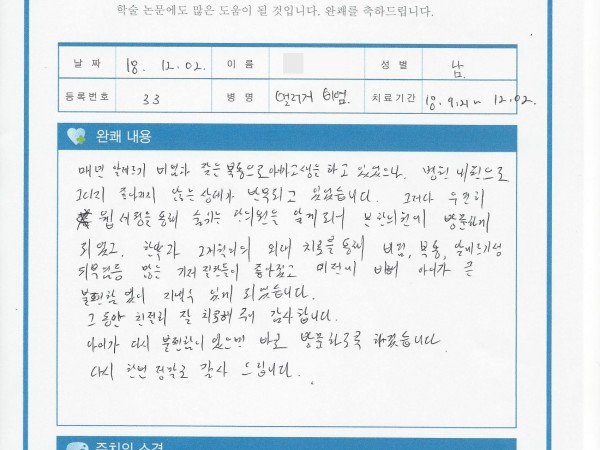 학술 논문에도 많은 도움이 될 것입니다. 완쾌를 축하드립니다.
날 짜 18. 12.02. 이 름 성 별 남.
등록번호 33 병 명 알러지 비염. 치료기간 18. 9.21~ 12.02.
완쾌 내용
매년 알레르기 비염과 잦은 복통으로 아이가 고생을 하고 있었으나. 병원 내원으로
그다지 좋아지지 않는 상태가 반복되고 있었습니다. 그러다 우연히
웹 서칭을 통해 숨쉬는 한의원을 알게되어 본 한의원에 방문하게
되었고, 한약과 그외의 치료를 통해 비염, 복통, 알레르기성
피부염등 많은 질환들이 좋아졌고 이전에 비해 아이가 큰
불편함 없이 지낼수 있게 되었습니다.
그 동안 친절히 잘 치료해 주어 감사합니다.
아이가 다시 불편함이 있으면 바로 방문하도록 하겠습니다.
다시 한번 감사 드립니다.
주치의 소견